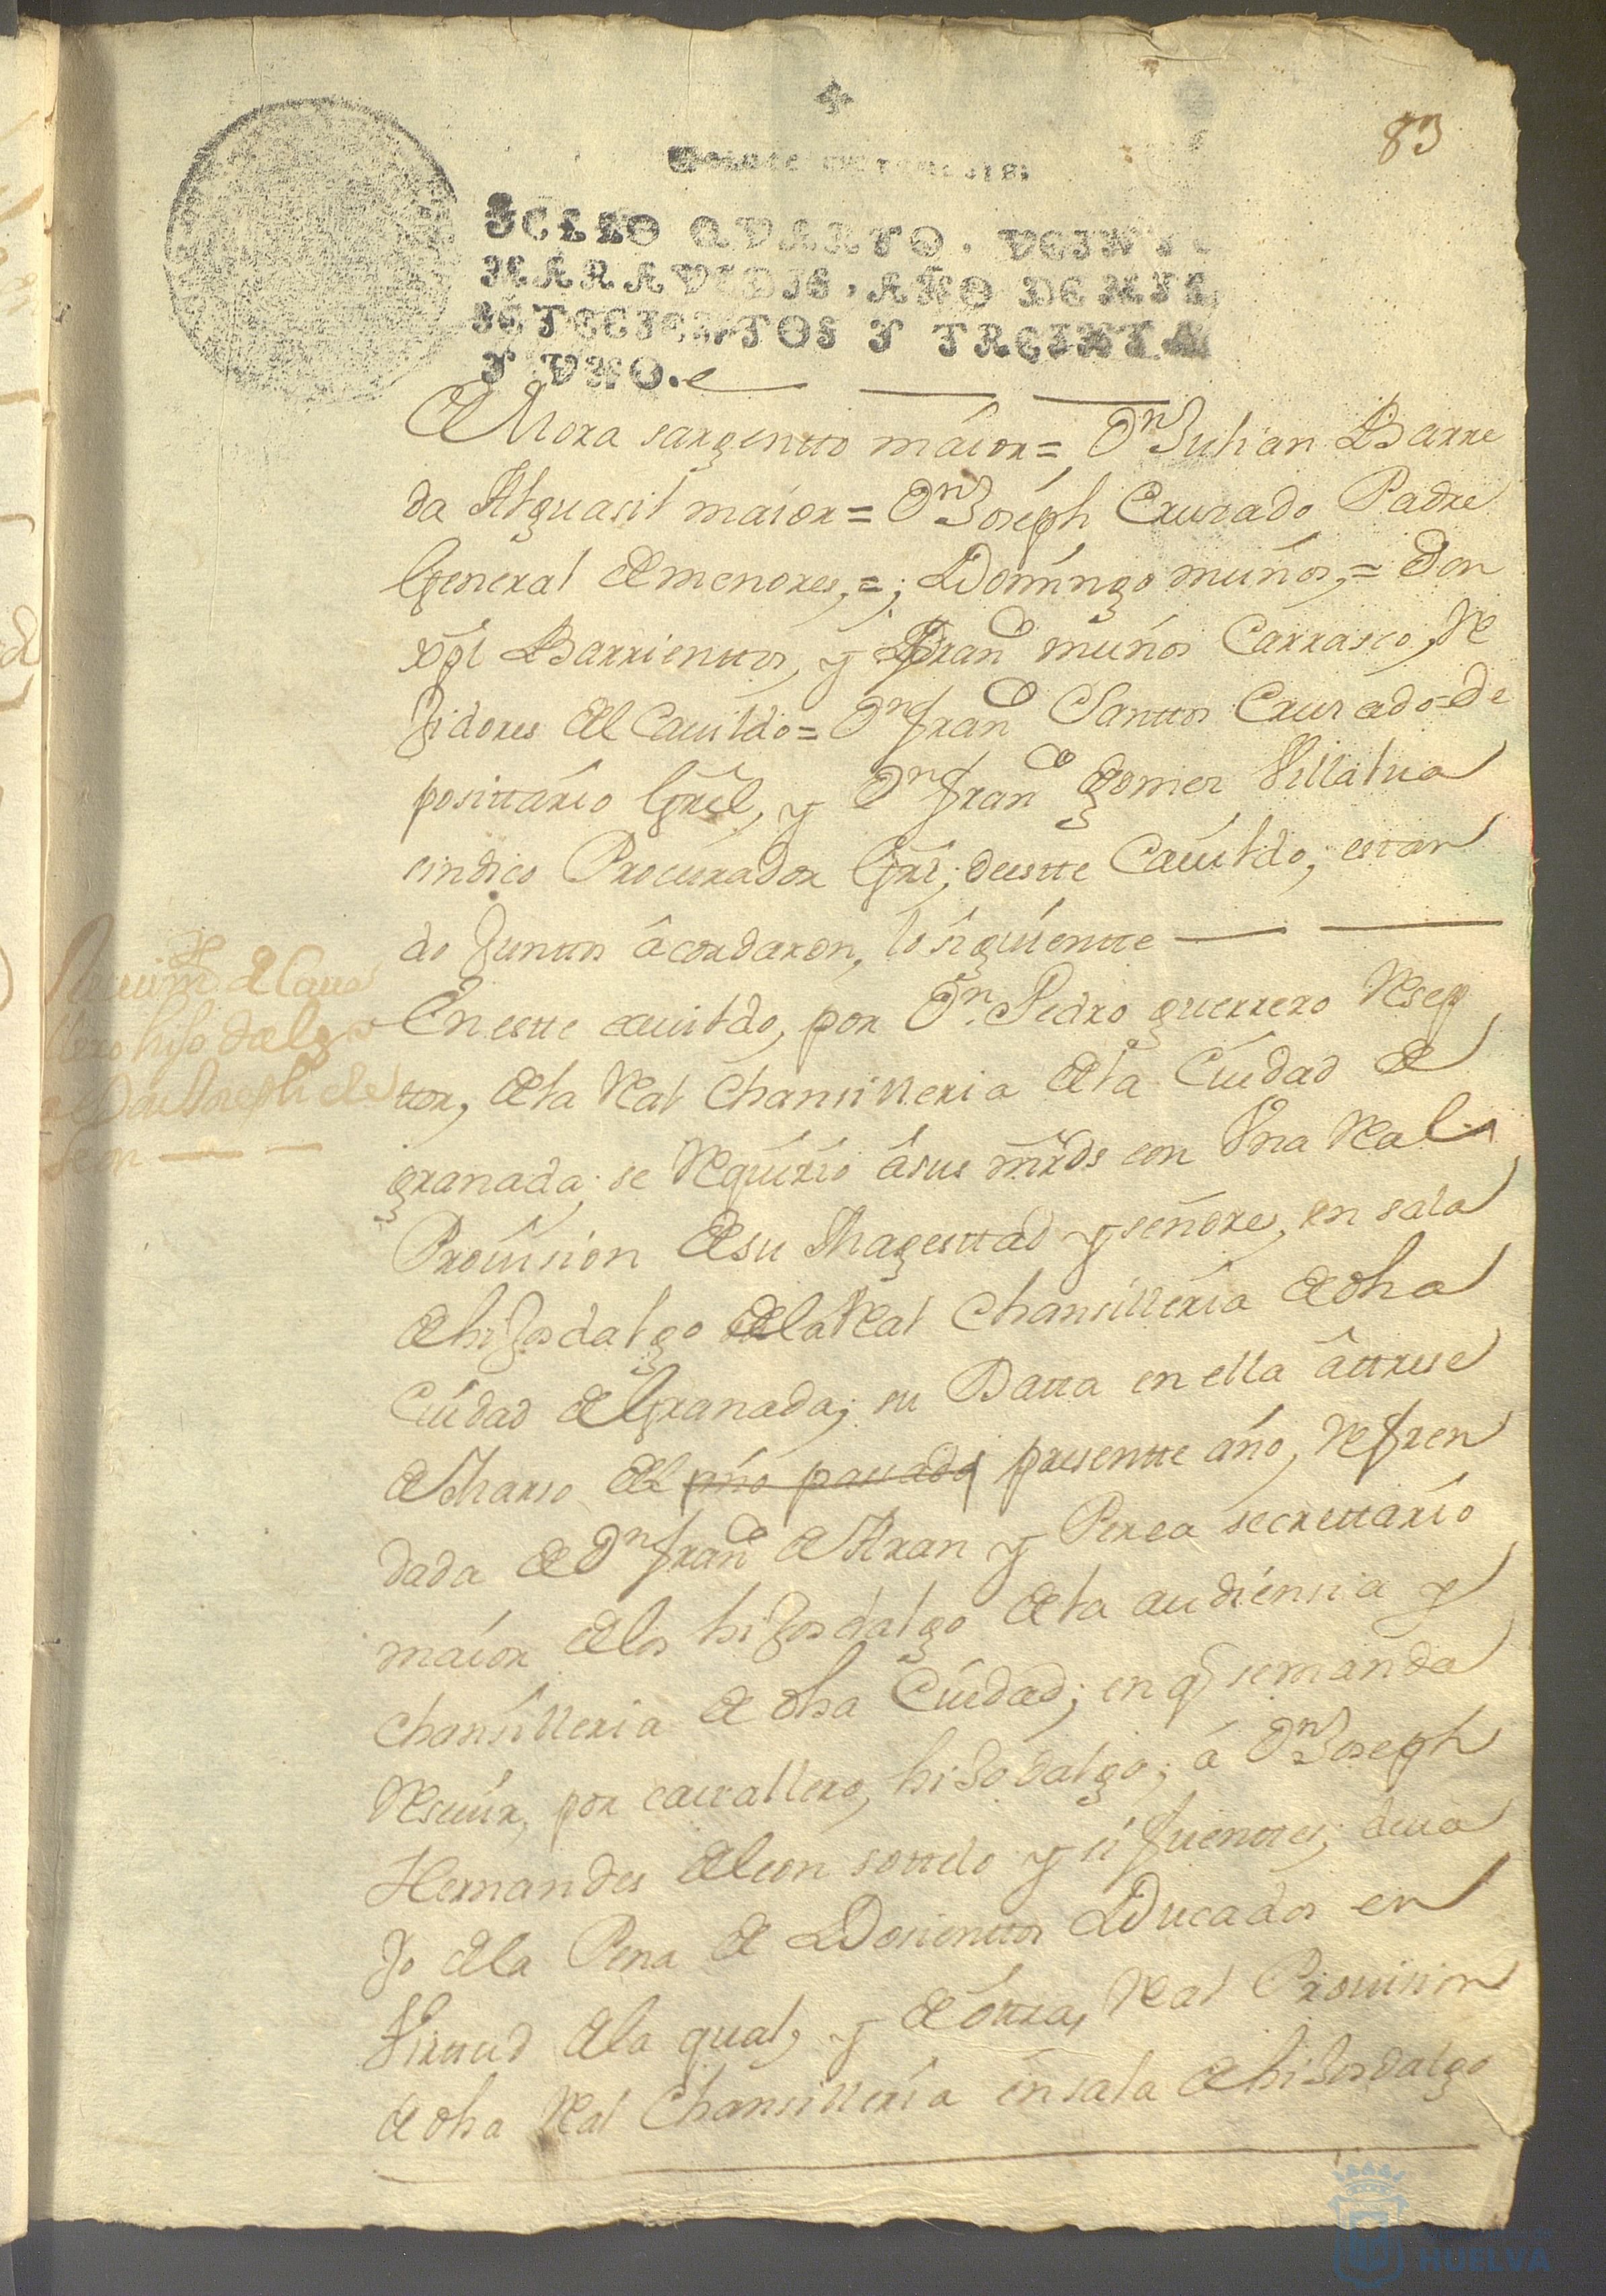 83
SELLO QVARTO. VEINTE
MARAVEDIS, AÑO DE MIL
SETECIENTOS Y TREINTA
Y VNO.
de Mora sargentto maior = Dn Julian Barre
da Alguasil maior = Dn Joseph Crusado Padre
General de menores, =; Domingo muños, = Don
xpl Barrienttos, y Franco muños Carrasco, Re
Jidores del Cauildo = Dn franco Santtos Crusado = De
posittario Gral, y Dn franco gomes Villalua
cindico Procurador Gral; deeste Cauildo; estan
do Junttos acordaron, lo siguientte
Reciuimto de Caua
llero hijo dalgo
a Don Joseph de
Leon
En estte cauildo, por Dn. Pedro guerrero Resep
tor, de la Real Chansilleria de la Ciudad de
granada; se Requirio a sus mrds con Vna Real
Prouision de su Magesttad y señores, en sala
de hiJosdalgo de la Real Chansilleria de dha
Ciudad de Granada; su Datta en ella a ttrese
de Marso del año passado presentte año, Refren
dada de Dn franco de Aran y Perea secrettario
maior de los hiJosdalgo de la audiensia y
chansilleria de dha Ciudad; en q se manda
Reseuir, por cauallero, hiJodalgo; á Dn Joseph
Hernandes de leon sottelo y sifuenttes; deua
Jo de la Pena de Dosienttos Ducados en
Virttud de la qual, y de ottra, Real Prouision
de dha Real Chansilleria en sala de hiJosdalgo
HUELVA